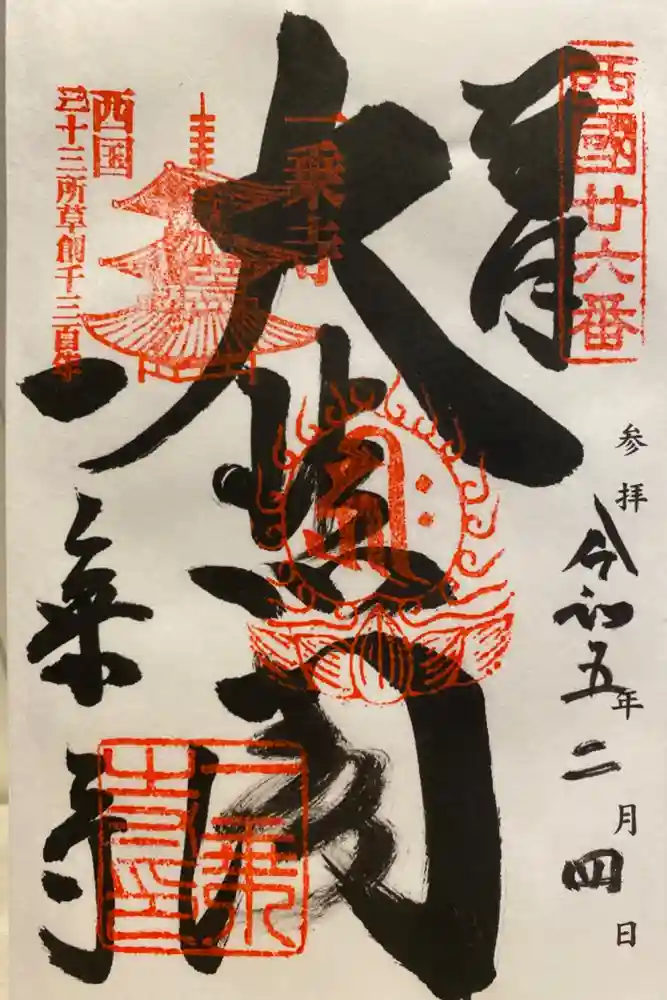 西國廿六番
奉拝
参拝
令和五年二月四日
大悲閣
一乗寺
一乗寺
西国
三十三所草創千三百年